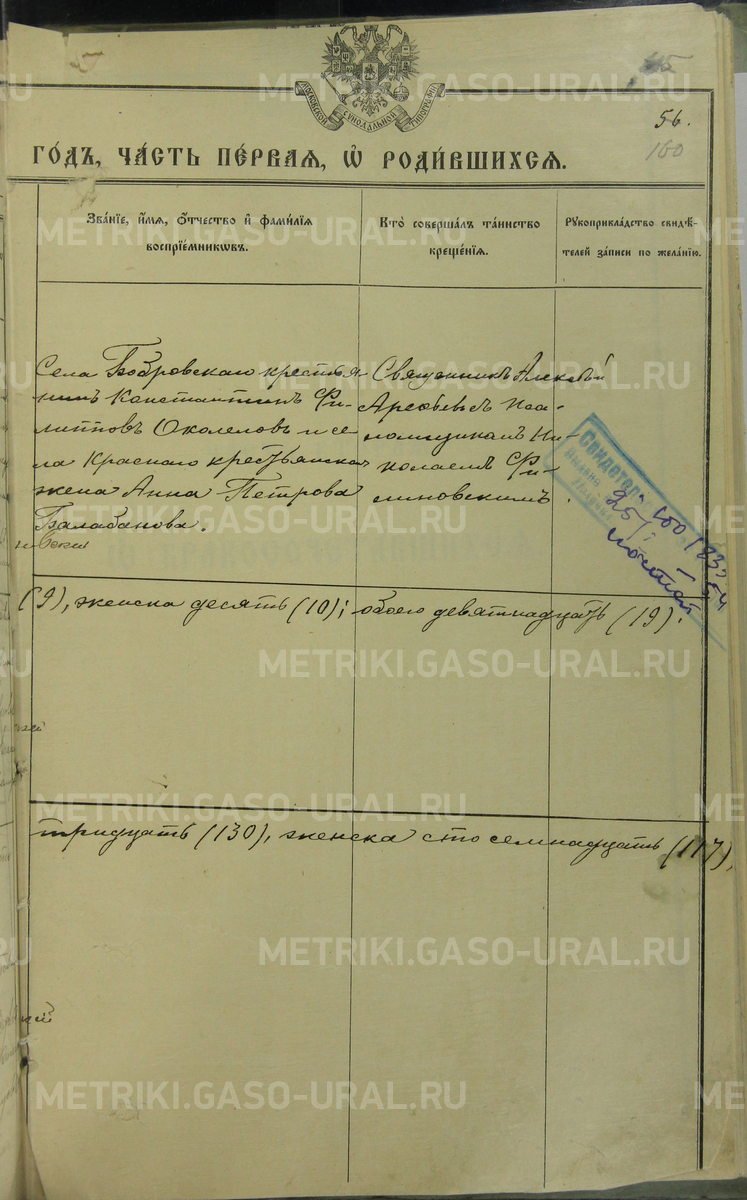 МОСКОВСКОЙ СѴНОДАЛЬНОЙ ТИПОГРАФІИ
56.
100
ГОДЪ, ЧАСТЬ ПЕРВАЯ, Ѡ РОДИВШИХСЯ.
Званіе, имя, отчество и фамилія
воспріемниковъ.
Кто совершалъ таинство
крещенія.
Рукоприкладство свидѣ-
телей записи по желанію.
Села Бобровскаго крестья-
нинъ Константинъ Фи-
липповъ Околеловъ и се-
ла Краснаго крестьянская
жена Анна Петрова
Балабанова.
Священникъ Алексѣй
Арефьевъ съ пса-
ломщикомъ Ни-
колаемъ Фи-
линовскимъ.
Свидетел
Выдана
25/
100
почтой
(9), женска десять (10); обоего девятнадцать (19).
тридцать (130), женска сто семнадцать (117),
METRIKI.GASO-URAL.RU